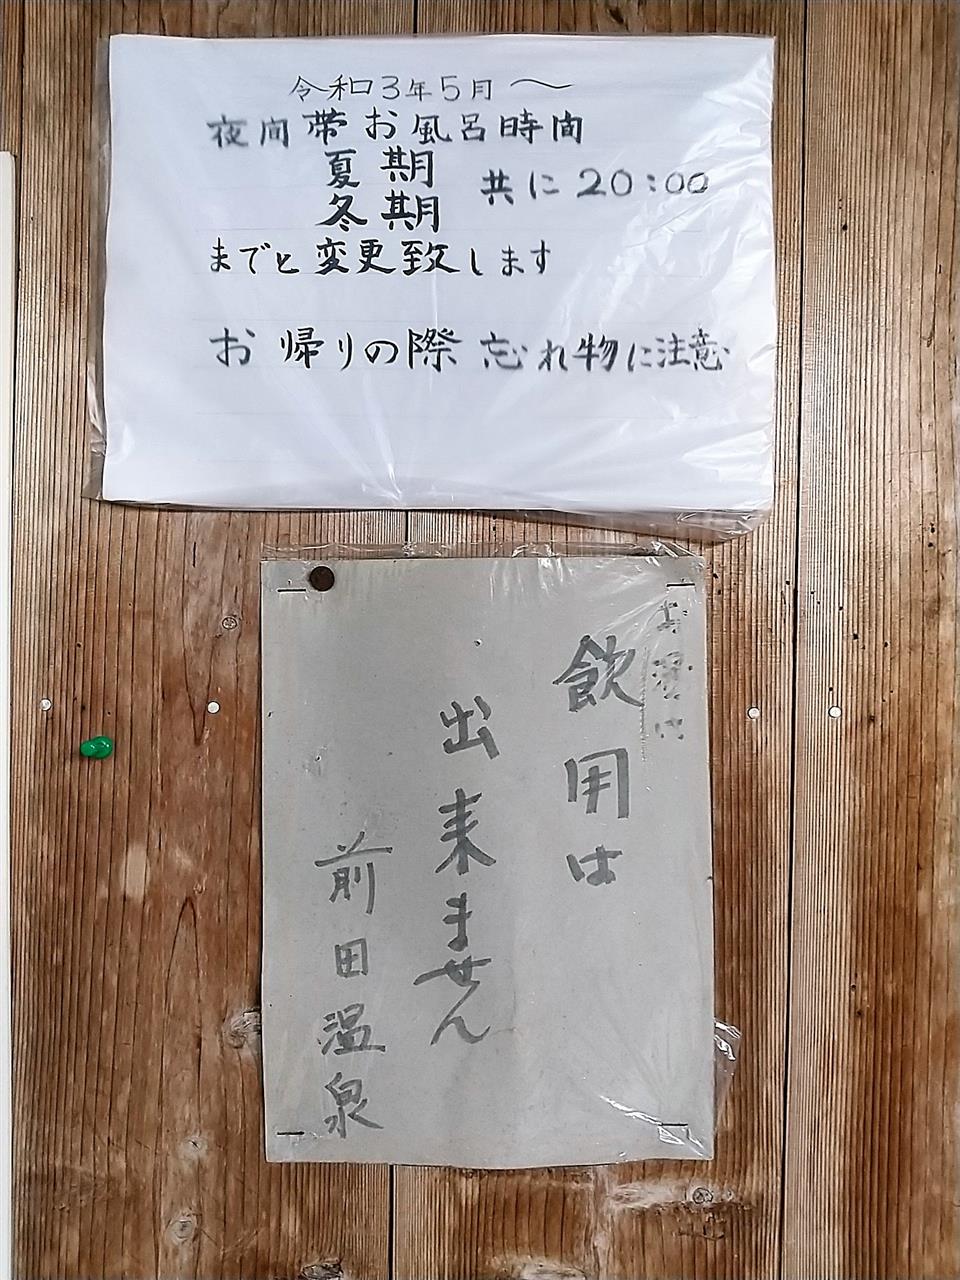 令和3年5月～
夜間帯お風呂時間
夏期
冬期
共に20:00
までと変更致します
お帰りの際 忘れ物に注意
飲用は
出来ません
前田温泉